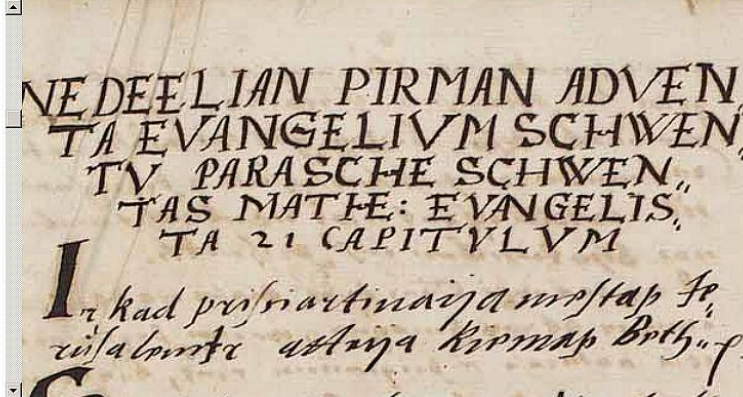 NEDEELIAN PIRMAN ADVEN„
TA EVANGELIVM SCHWEN„
TV PARASCHE SCHWEN„
TAS MATHE: EVANGELIS„
TA 21 CAPITVLVM
Ir kad prisiartinaija mestap Je„
rusalem ir ateija Kiemap Beth„